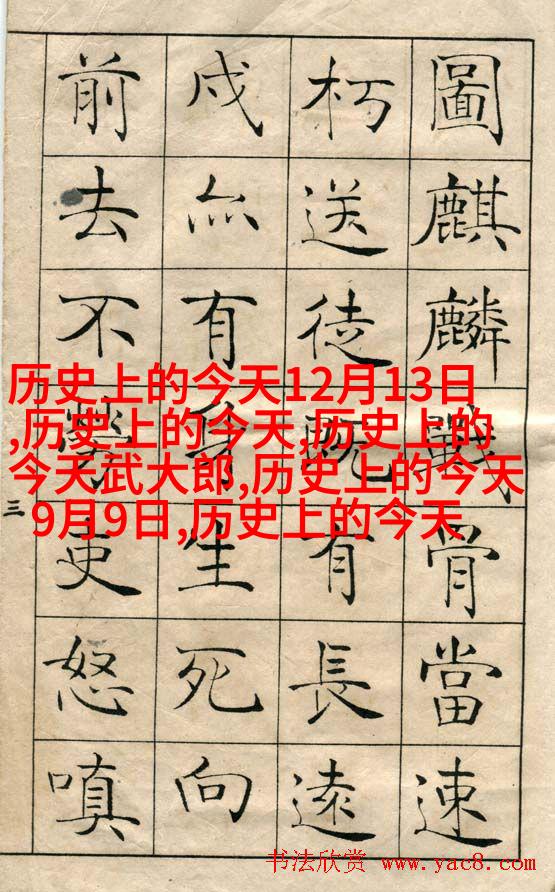 圖麒麟戰骨當速
朽送徒既有長遠
戍亦有身生死向
前去不勞吏怒嗔
三
历史上的今天12月13日
,历史上的今天,历史上的
今天武大郎,历史上的今天
9月9日,历史上的今天
书法欣赏 www.yac8.com